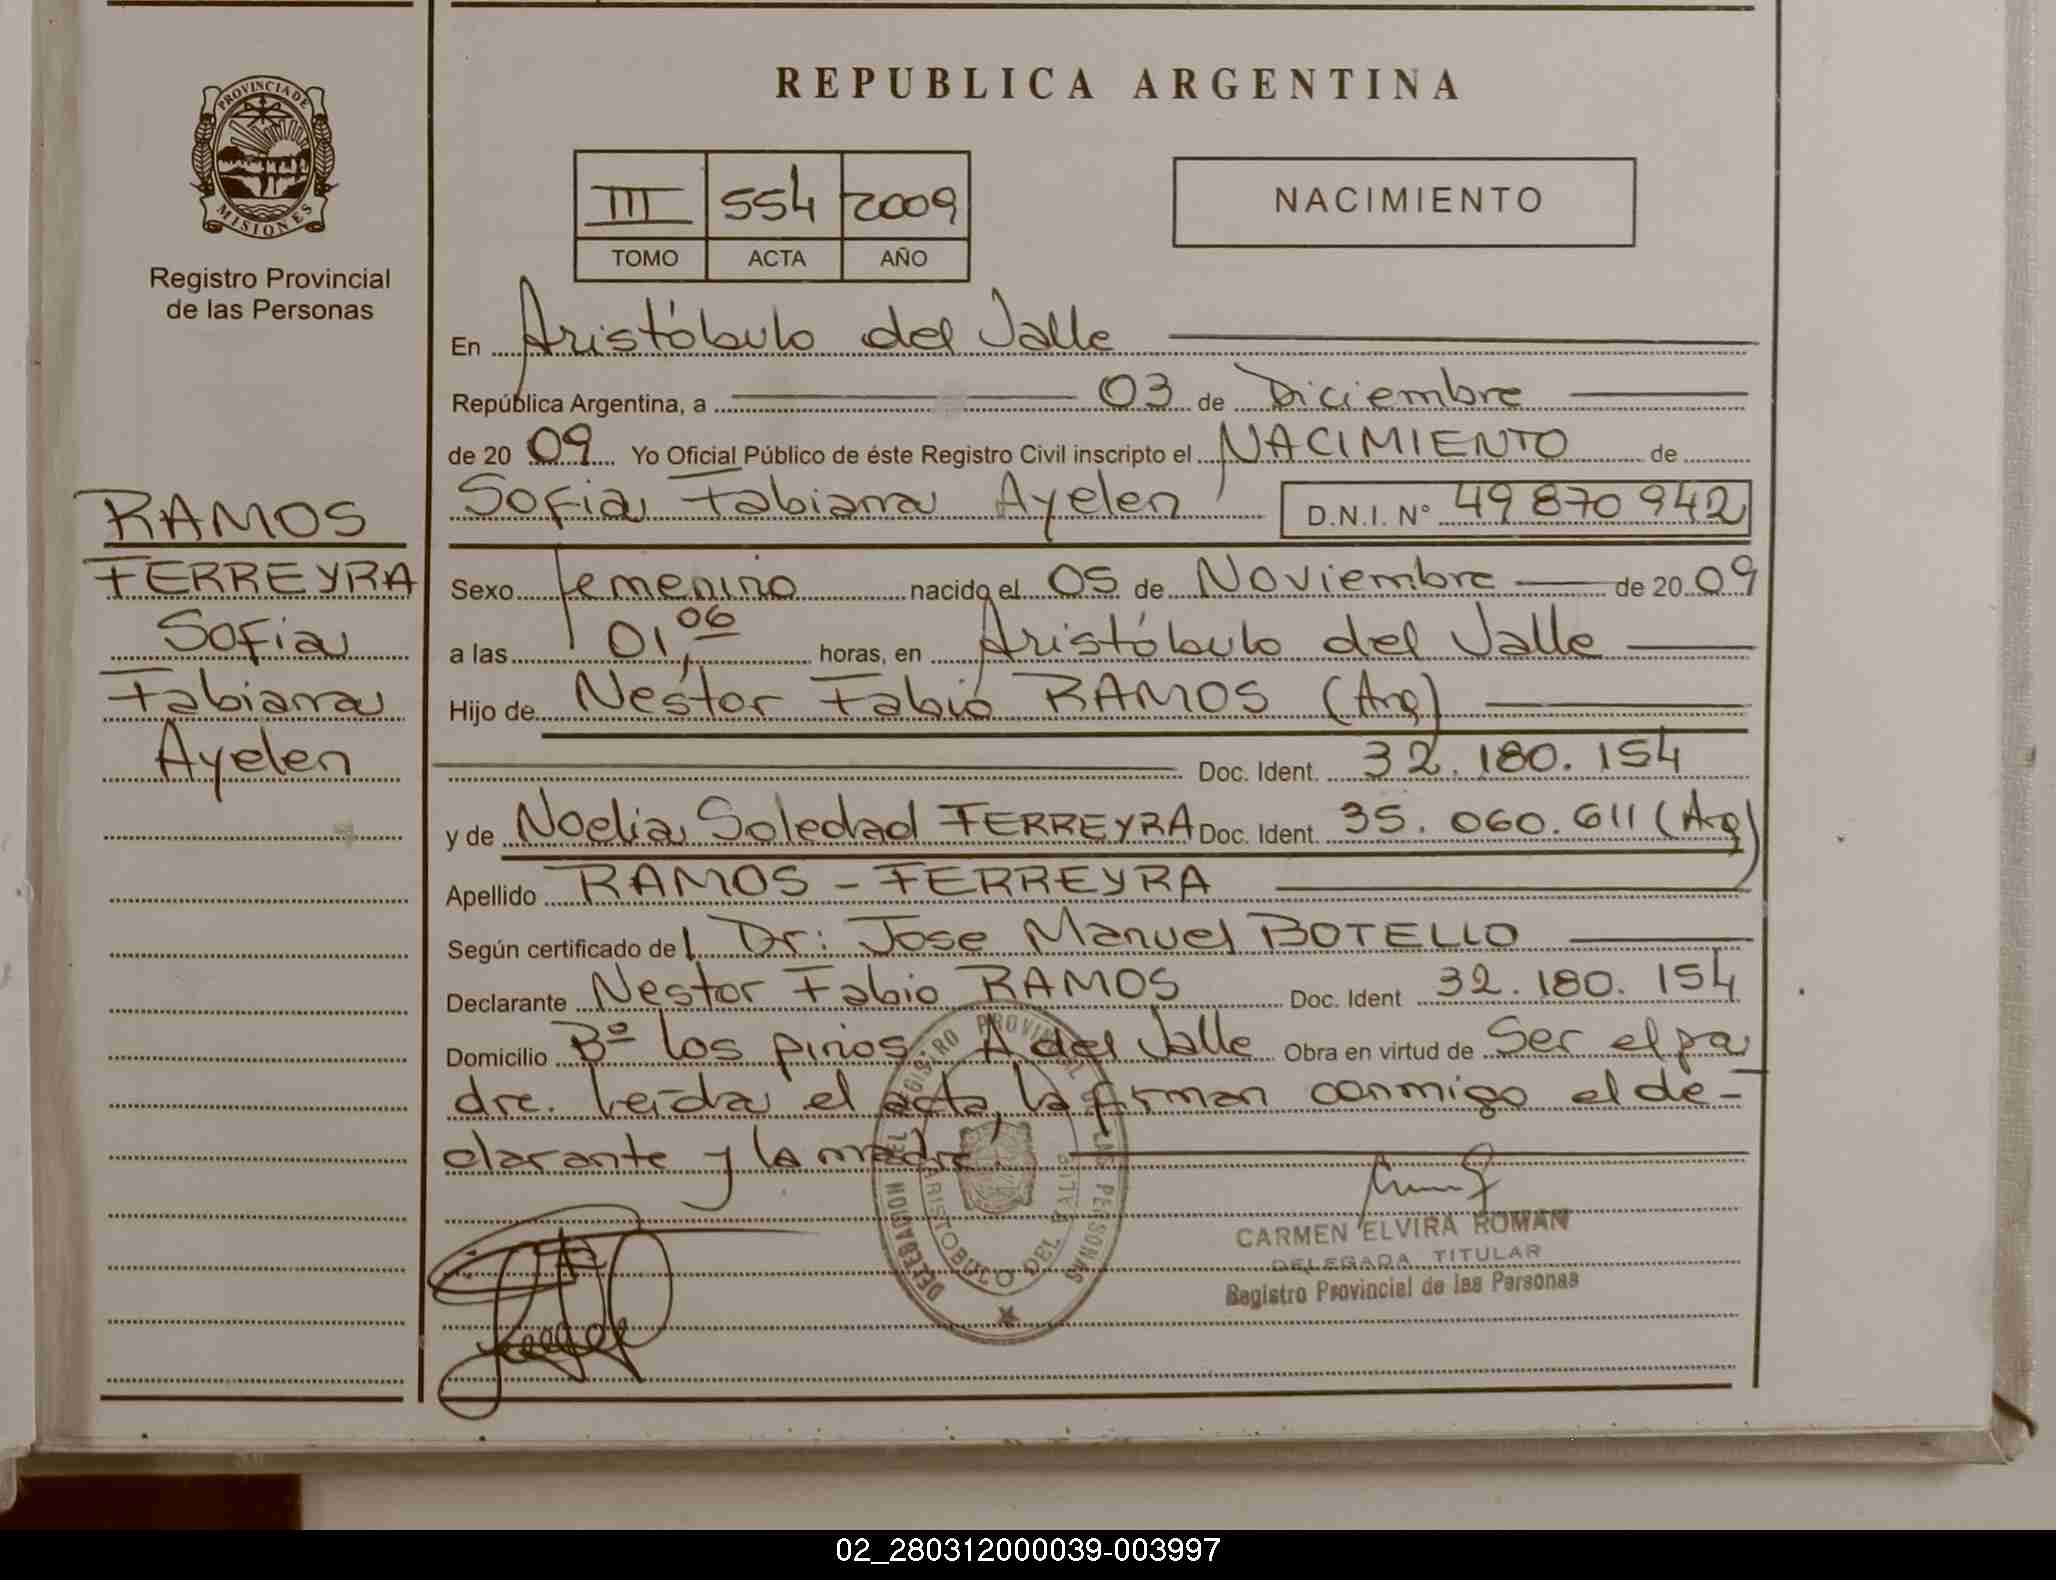 REPUBLICA ARGENTINA
PROVINCIA DE
MISIONES
Registro Provincial
de las Personas
III 554 2009
TOMO ACTA AÑO
NACIMIENTO
RAMOS
FERREYRA
Sofia
Fabiana
Ayelen
En Aristóbulo del Valle
República Argentina, a 03 de Diciembre
de 20 09 Yo Oficial Público de éste Registro Civil inscripto el NACIMIENTO de
Sofia Fabiana Ayelen D.N.I. N° 49 870 942
Sexo femenino nacido el 05 de Noviembre de 20 09
a las 01,06 horas, en Aristóbulo del Valle
Hijo de Nestor Fabio RAMOS (Arg)
Doc. Ident. 32.180.154
y de Noelia Soledad FERREYRA Doc. Ident. 35.060.611 (Arg)
Apellido RAMOS - FERREYRA
Según certificado de l Dr: Jose Manuel BOTELLO
Declarante Nestor Fabio RAMOS Doc. Ident 32.180.154
Domicilio Bº los pinos A del Valle Obra en virtud de Ser el pa
dre. Leida el acta, la firman conmigo el de-
clarante y la madre.
DELEGACION DEL REGISTRO PROVINCIAL DE LAS PERSONAS
ARISTOBULO DEL VALLE
CARMEN ELVIRA ROMAN
DELEGADA TITULAR
Registro Provincial de las Personas
02_280312000039-003997